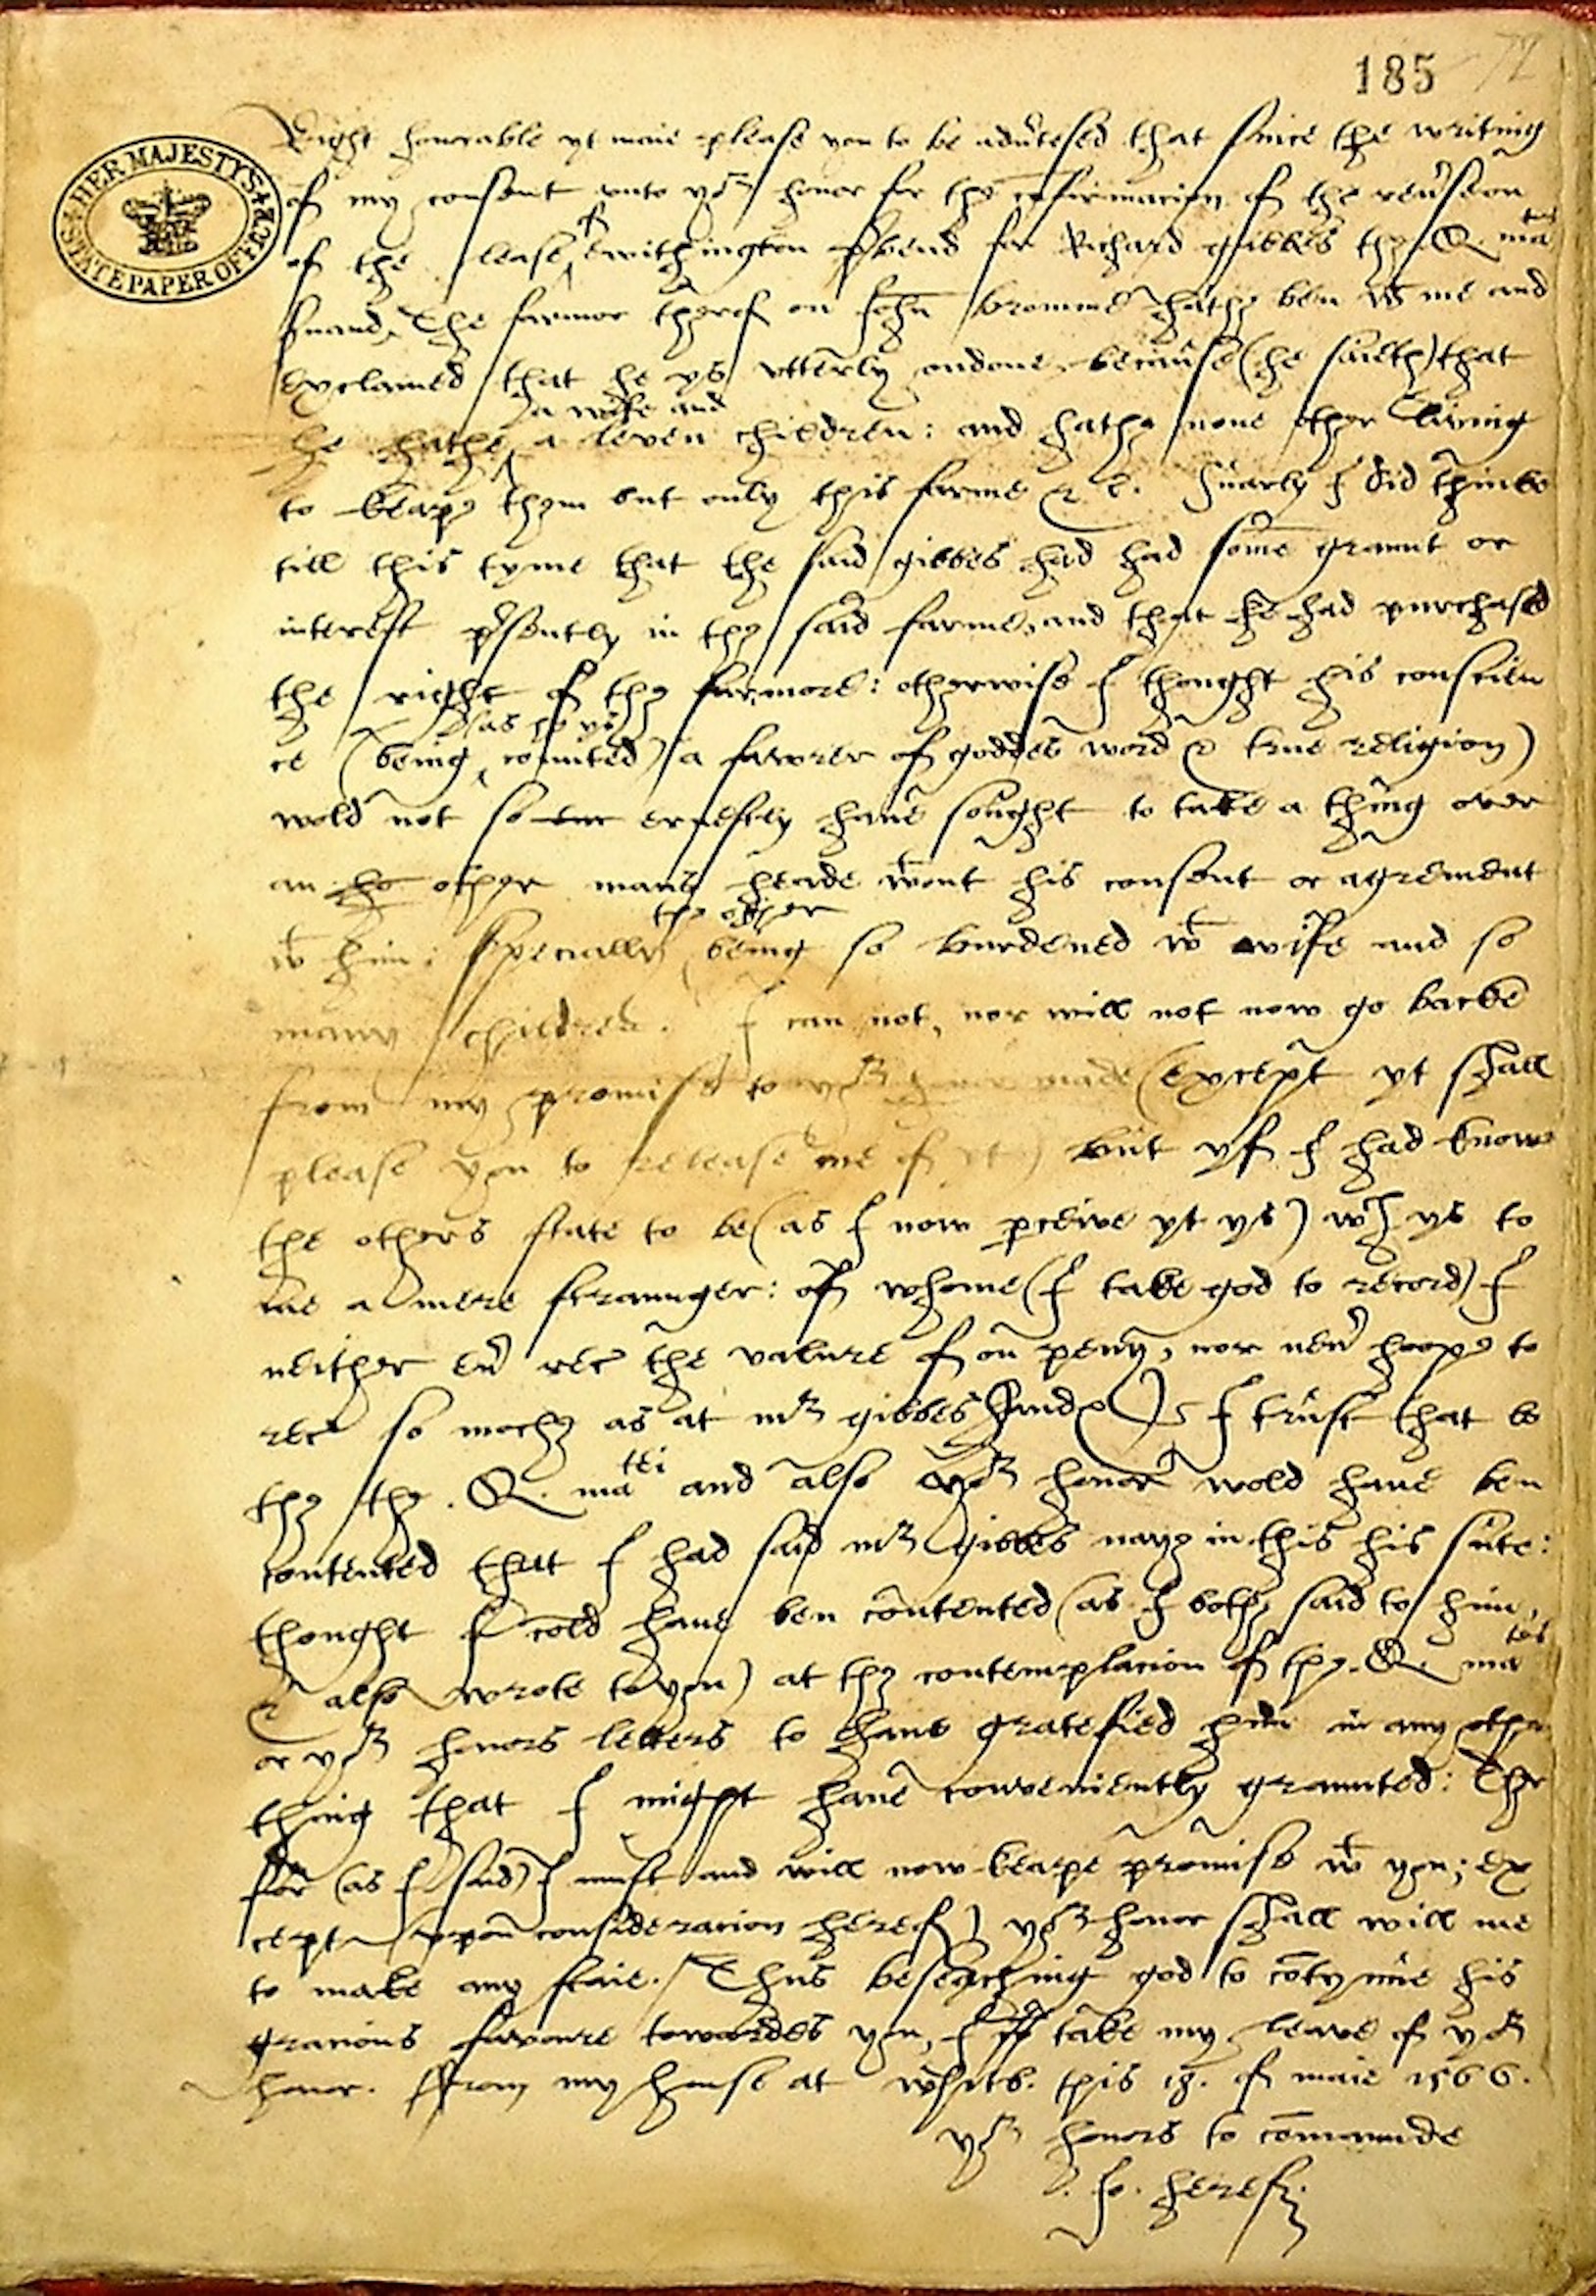 185 72
HER MAJESTYS STATE PAPER OFFICE
Right honorable yt maie please you to be advˀtesed that since the writing
of my consent unto yor honor for the cōfirmacion of the revˀseon
of the lease of ewithington p̱bend for Richard gibbes the Q. maties
sˀuand, The farmor therof on John bromme hathe ben wt me and
exclamed that he ys utterly ondone, because (he saieth) that
he hathe a wife and a leven children: and hathe none other living
to keape them but only this farme &c. Suarly I did thinke
till this tyme that the said gibbes had had some graunt or
interest pˀsently in the said farme, and that he had purchased
the right of the farmore: otherwise I thought his conscien
ce (being as he ys coūnted) a favorer of goddes word & true religion)
wold not so ernestly have sought to take a thing over
an ho other mans heade wtout his consent or agrement
wt him: specially the other being so burdened wt wife and so
many children. I can not, nor will not now go backe
from my promise to yor honor made (except yt shall
please you to release me of yt) but yf I had know
the others state to be (as I now p̱ceive yt ys) wch ys to
me a mere straunger: of whome (I take god to record) I
neither evˀ rec the valure of on peny, nor nevˀ hoope to
rec so moche as at mr gibbes hand I trust that bo
the the. Q. matei and also yor honor wold have ben
contented that I had said mr gibbes naye in this his sute:
thought I cold have ben contented (as I bothe said to him,
& also wrote to you) at the contemplacion of the. Q. maties
or yor honors letters to have gratefied him in any other
thing that I might have conveniently graunted: Ther
for (as I said) I must and will now keape promise wt you; ex
cept (upon consideracion herof) yor honor shall will me
to make any staie. Thus beseaching god to cōtynue his
gracious favoure towardes you, I take my leave of yor
honor. ffrom my house at whitb. this 18. of maie 1566.
yor honors to cōmaunde
Jo. heref.